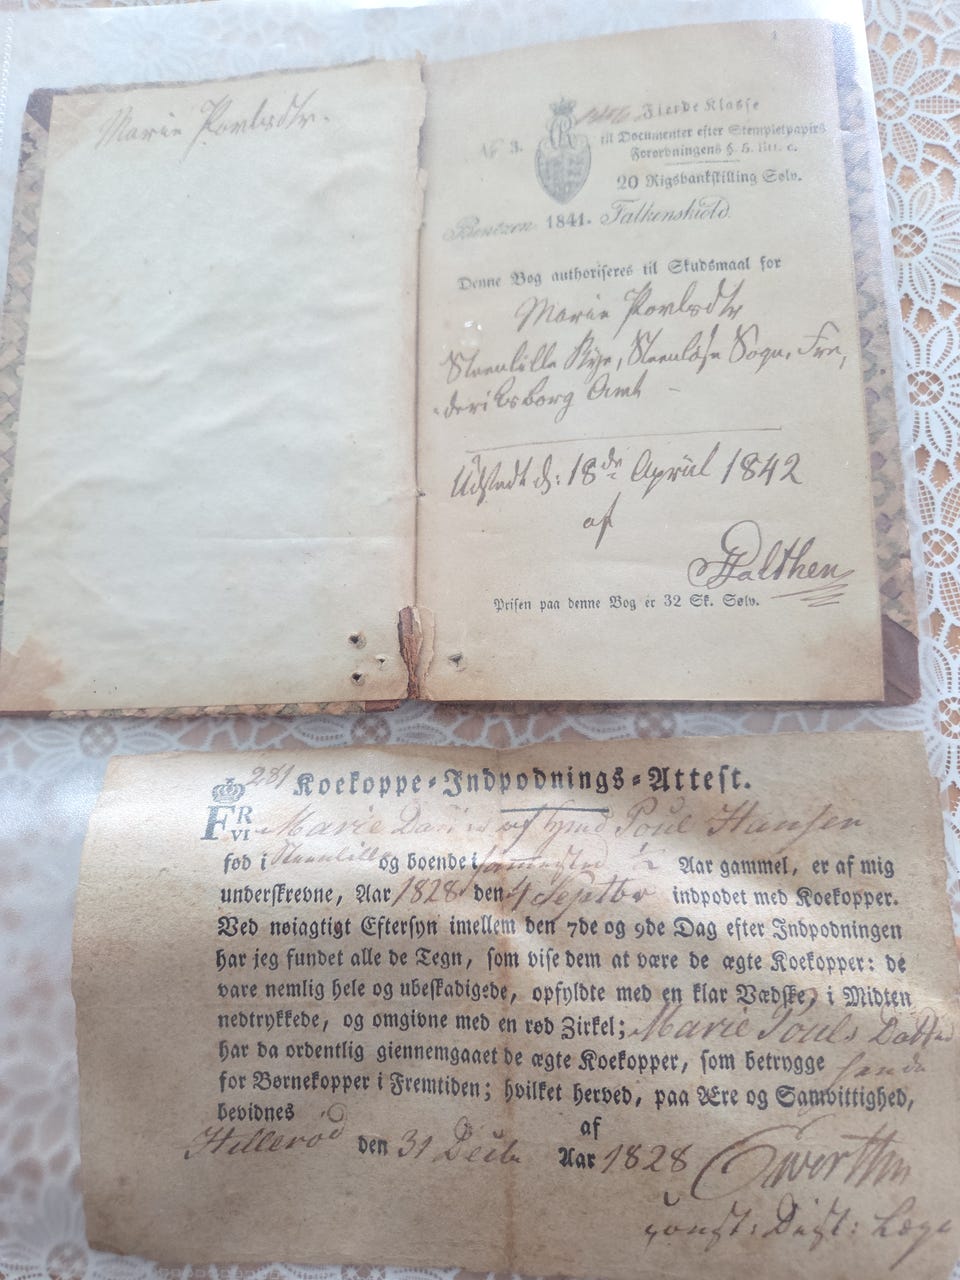 Marie Povlsdtr.
No 3. Fierde Klasse
til Documenter efter Stempletpapirs
Forordningens §. 5. litt. c.
20 Rigsbankskilling Sølv.
1841. Falkenskiold.
Denne Bog authoriseres til Skudsmaal for
Marie Povlsdtr
Steenlille Bye, Steenløse Sogn, Fre,
deriksborg Amt –
Udstedt d: 18de April 1842
af
Palthen
Prisen paa denne Bog er 32 Sk. Sølv.
281 Koekoppe-Indpodnings-Attest.
FR VI Marie Datter af Hmd Poul Hansen
fød i Steenlille og boende i sammested 1/2 Aar gammel, er af mig
underskrevne, Aar 1828 den 4 Septbr indpodet med Koekopper.
Ved nøiagtigt Eftersyn imellem den 7de og 9de Dag efter Indpodningen
har jeg fundet alle de Tegn, som vise dem at være de ægte Koekopper: de
vare nemlig hele og ubeskadigede, opfyldte med en klar Vædske, i Midten
nedtrykkede, og omgivne med en rød Zirkel; Marie Pouls Datter
har da ordentlig giennemgaaet de ægte Koekopper, som betrygge hende
for Børnekopper i Fremtiden; hvilket herved, paa Ære og Samvittighed,
bevidnes af
Hillerød den 31 Decbr Aar 1828
const: Dist: Læge